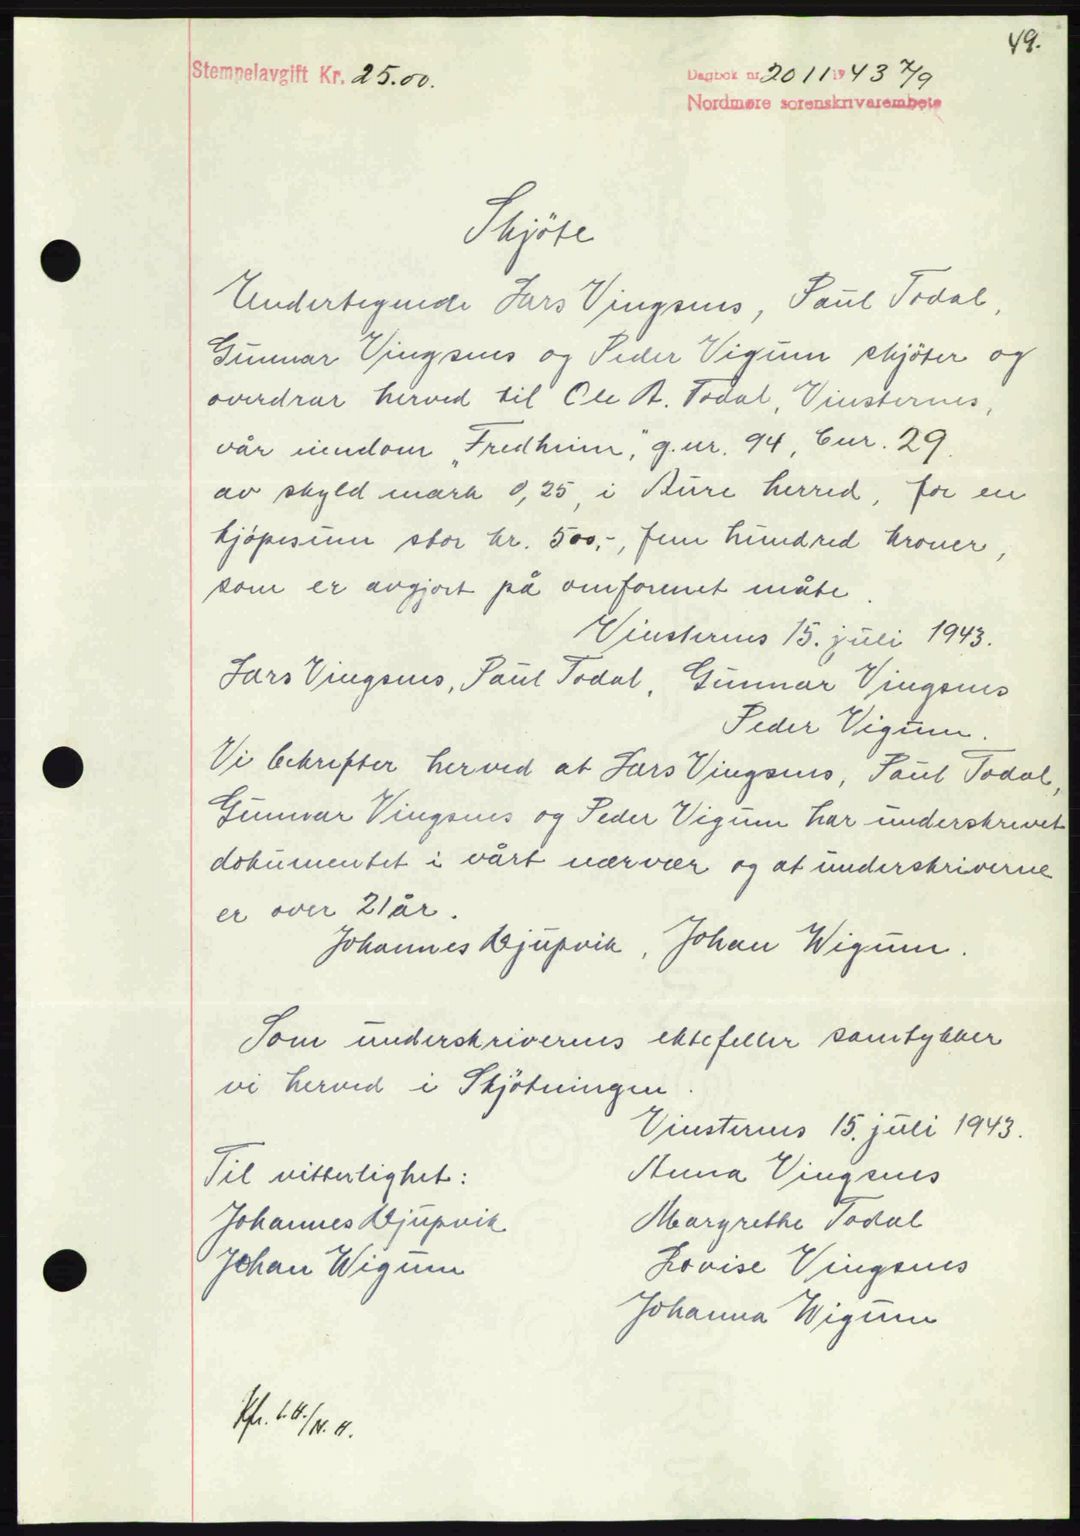 49.
Stempelavgift Kr. 25.00.
Dagbok nr. 2011 1943 7/9
Nordmøre sorenskrivarembete
Skjöte
Undertegnede Lars Vingsnes, Paul Todal,
Gunnar Vingsnes og Peder Vigum skjöter og
overdrar herved til Ole A. Todal, Vinsternes,
vår eiendom "Fredheim", g.nr. 94, bnr. 29
av skyld mark 0,25, i Aure herred, for en
kjöpesum stor kr. 500,-, fem hundred kroner,
som er avgjort på omforenet måte.
Vinsternes 15. juli 1943.
Lars Vingsnes, Paul Todal, Gunnar Vingsnes
Peder Vigum.
Vi bekrefter herved at Lars Vingsnes, Paul Todal,
Gunnar Vingsnes og Peder Vigum har underskrevet
dokumentet i vårt nærvær og at underskriverne
er over 21 år.
Johannes Djupvik, Johan Wigum.
Som underskrivernes ektefeller samtykker
vi herved i Skjötningen.
Vinsternes 15. juli 1943.
Til vitterlighet:
Anna Vingsnes
Johannes Djupvik
Margrethe Todal
Johan Wigum
Lovise Vingsnes
Johanna Wigum
Kfr.